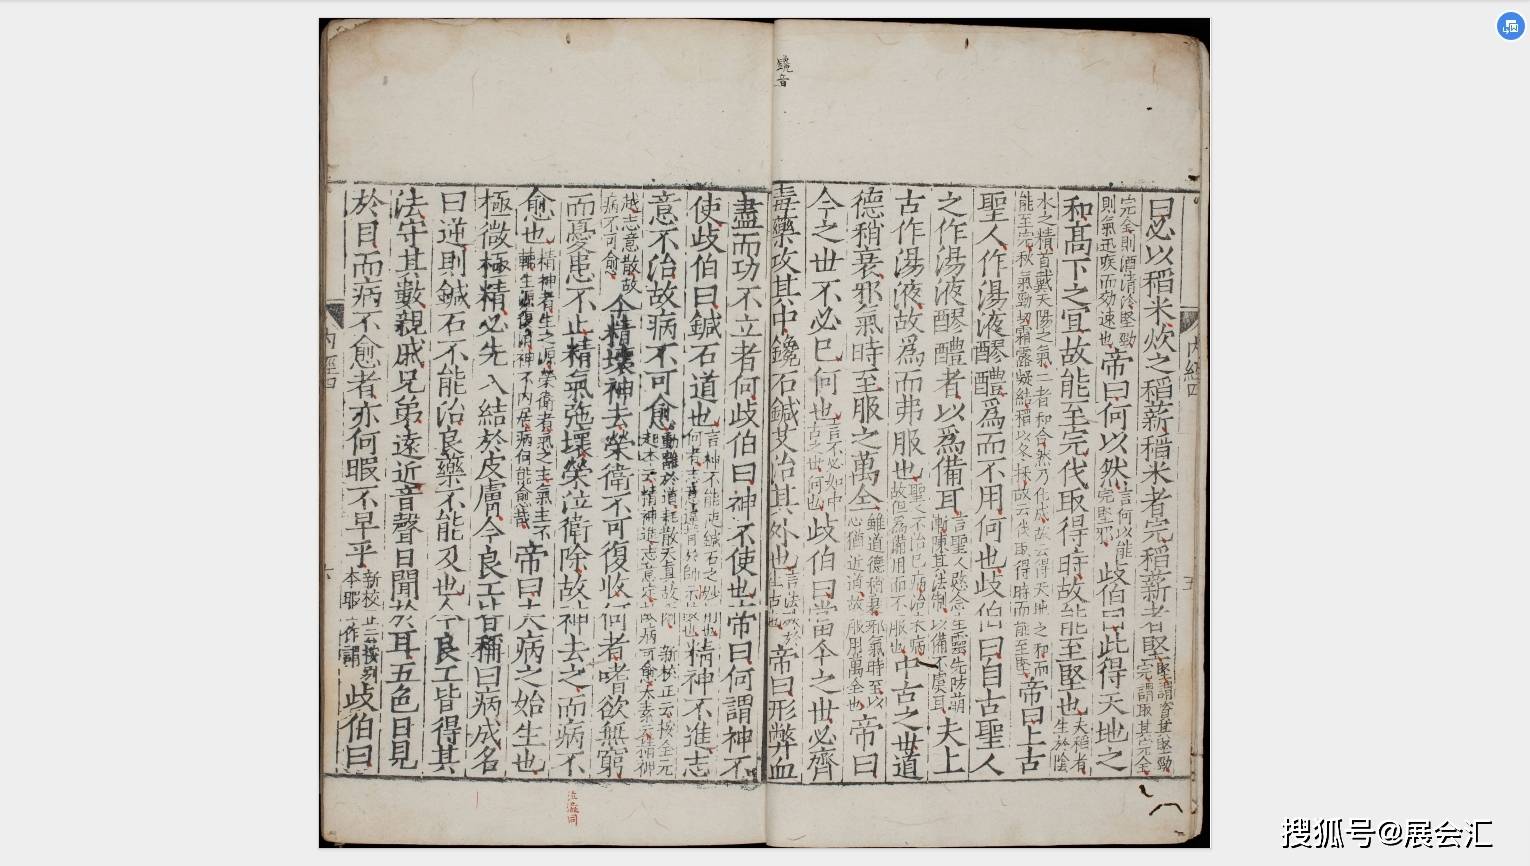 曰必以稻米炊之稻薪稻米者完稻薪者堅堅謂資其堅勁完謂取其完全
完全則酒清冷堅勁則氣迅疾而効速也帝曰何以然言何以能完堅邪歧伯曰此得天地之
和高下之宜故能至完伐取得時故能至堅也夫稻者生於陰
水之精首戴天陽之氣二者和合然乃化成故云得天地之和而能至完秋氣勁切霜露凝結稻以冬採故云伐取得時而能至堅帝曰上古
聖人作湯液醪醴爲而不用何也歧伯曰自古聖人
之作湯液醪醴者以爲備耳言聖人愍念生靈先防萌漸陳其法制以備不虞耳夫上
古作湯液故爲而弗服也聖人不治已病治未病故但爲備用而不服也中古之世道
德稍衰邪氣時至服之萬全雖道德稍衰邪氣時至以心猶近道故服用萬全也帝曰
今之世不必已何也言不必如中古之世何也歧伯曰當今之世必齊
毒藥攻其中鑱石鍼艾治其外也言法殊於往古也帝曰形弊血
盡而功不立者何歧伯曰神不使也帝曰何謂神不
使歧伯曰鍼石道也言神不能使鍼石之妙用也何者志意違背於師示故也精神不進志
意不治故病不可愈動離於道耗散天真故爾新校正云按全元起本云精神進志意定故病可愈太素云精神
越志意散故病不可愈今精壞神去榮衛不可復收何者嗜欲無窮
而憂患不止精氣弛壞榮泣衛除故神去之而病不
愈也精神者生之源榮衛者氣之主氣主不輔生源復消神不內居病何能愈哉帝曰夫病之始生也
極微極精必先入結於皮膚今良工皆稱曰病成名
曰逆則鍼石不能治良藥不能及也今良工皆得其
法守其數親戚兄弟遠近音聲日聞於耳五色日見
於目而病不愈者亦何暇不早乎新校正云按別本暇一作謂歧伯曰
內經四
五
內經四
六
鑱音
泣澁同
搜狐号@展会汇